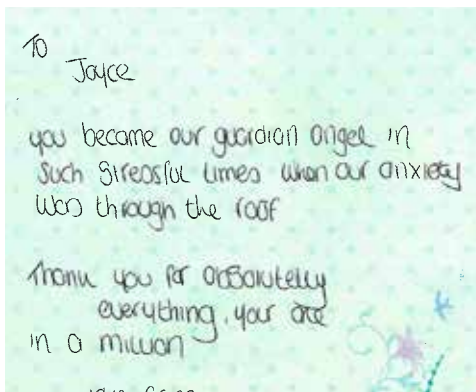 To
Joyce
you became our guardian angel in
such stressful times when our anxiety
was through the roof
Thank you for absolutely
everything, your one
in a million